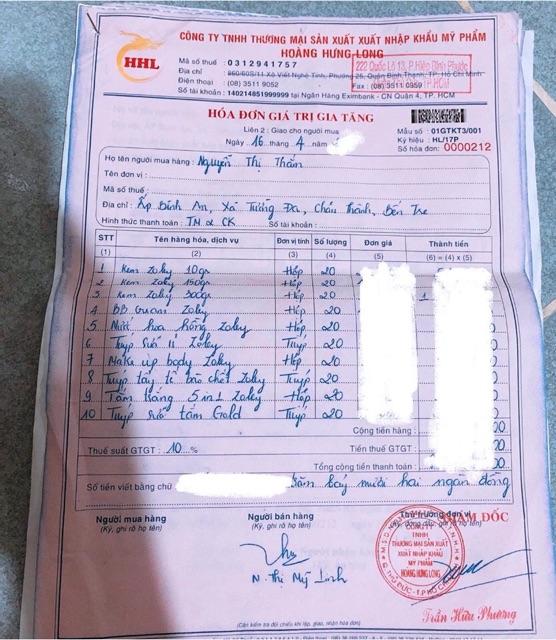 CÔNG TY TNHH THƯƠNG MẠI SẢN XUẤT XUẤT NHẬP KHẨU MỸ PHẨM
HOÀNG HƯNG LONG
HHL
Mã số thuế : 0312941757
222 Quốc Lộ 13, P.Hiệp Bình Phước
Địa chỉ : 860/60S/11 Xô Viết Nghệ Tĩnh, Phường 25, Quận Bình Thạnh, TP. Hồ Chí Minh
Điện thoại : (08) 3511 9052 Fax : (08) 3511 0959
Số tài khoản : 140214851999999 tại Ngân Hàng Eximbank - CN Quận 4, TP. HCM
HÓA ĐƠN GIÁ TRỊ GIA TĂNG
Liên 2 : Giao cho người mua
Ngày 16 tháng 4 năm
Mẫu số : 01GTKT3/001
Ký hiệu : HL/17P
Số hóa đơn: 0000212
Họ tên người mua hàng : Nguyễn Thị Thắm
Tên đơn vị :
Mã số thuế :
Địa chỉ : Ấp Bình An, Xã Tường Đa, Châu Thành, Bến Tre
Hình thức thanh toán : TM & CK Số tài khoản :
STT Tên hàng hóa, dịch vụ Đơn vị tính Số lượng Đơn giá Thành tiền
(1) (2) (3) (4) (5) (6) = (4) x (5)
1 Kem Zoley 10gr Hộp 20
2 Kem Zoley 150gr Hộp 20
3 Kem Zoley 300gr Hộp 20
4 BB Cream Zoley Hộp 20
5 Nước hoa hồng Zoley Hộp 20
6 Tuýp Zoley Tuýp 20
7 Make up body Zoley Hộp 20
8 Tuýp tẩy tế bào chết Zoley Tuýp 20
9 Tắm trắng 5 in 1 Zoley Hộp 20
10 Tuýp sữa tắm Gold Tuýp 20
Cộng tiền hàng :
Thuế suất GTGT : 10 % Tiền thuế GTGT :
Tổng cộng tiền thanh toán :
Số tiền viết bằng chữ : trăm bảy mươi hai ngàn đồng
Người mua hàng Người bán hàng Thủ trưởng đơn vị
(Ký, ghi rõ họ tên) (Ký, ghi rõ họ tên)
GIÁM ĐỐC
CÔNG TY
TNHH
THƯƠNG MẠI SẢN XUẤT
XUẤT NHẬP KHẨU
MỸ PHẨM
HOÀNG HƯNG LONG
N. Thị Mỹ Linh
Trần Hữu Phương
(Cần kiểm tra đối chiếu khi lập, giao, nhận hóa đơn)